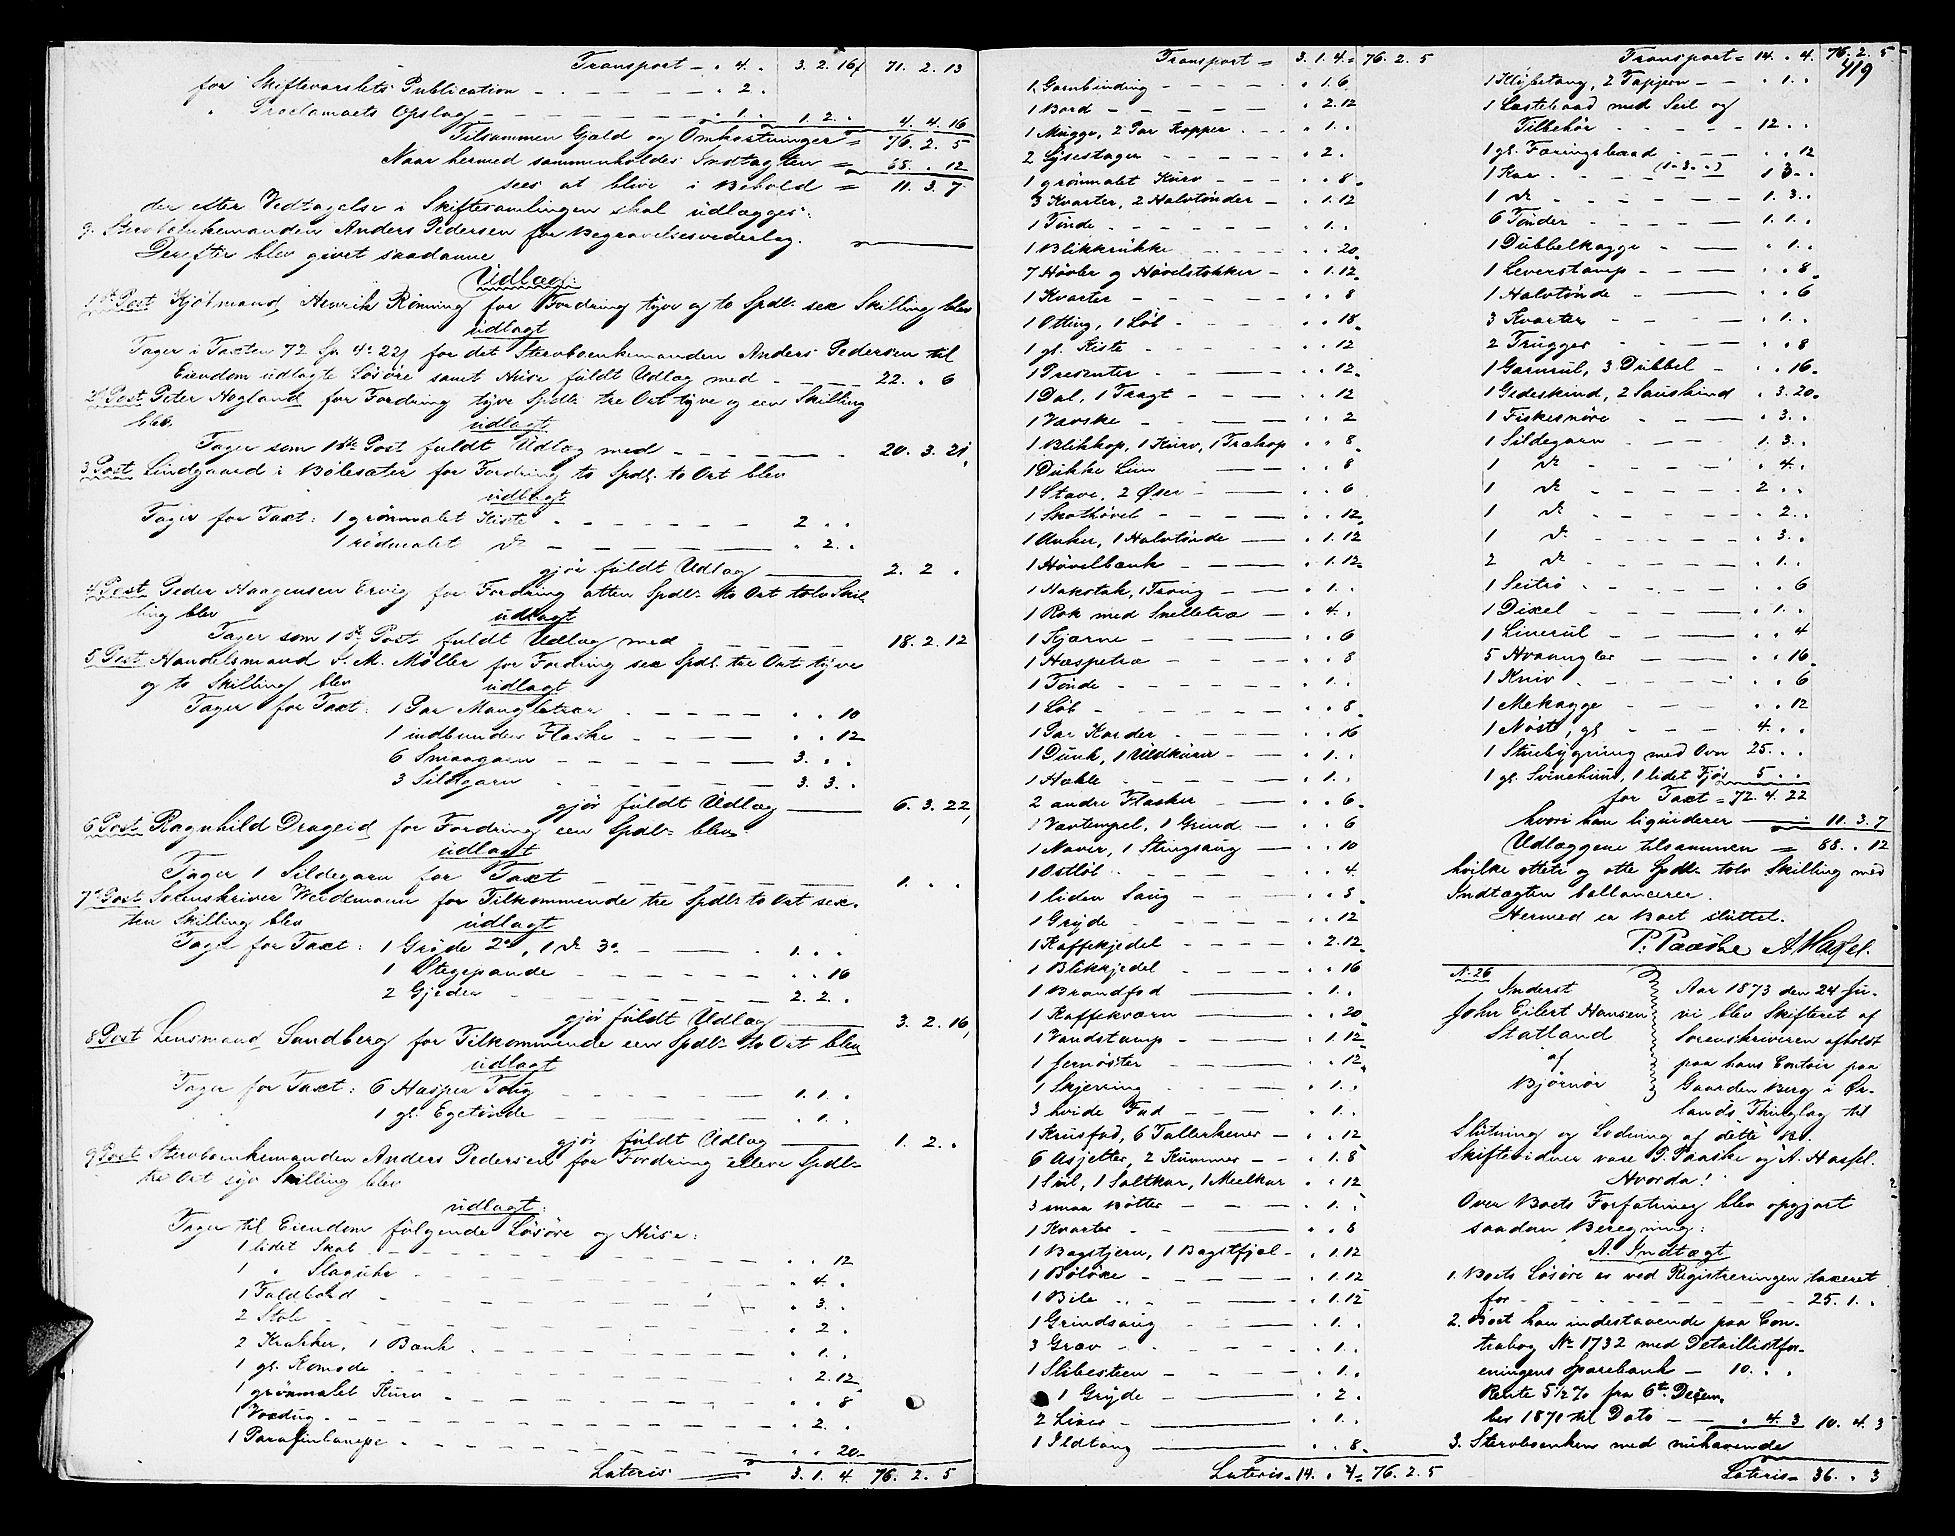 Transport – „ 4. „ 3. 2. 16 71. 2. 13
for Skiftevarslets Publication – „ 2. „
„ Proclamaets Opslag – „ 1. „ 1. 2. „ 4. 4. 16
Tilsammen Gjæld og Omkostninger = 76. 2. 5
Naar hermed sammenholdes Indtægten = 65. „ 12
sees at blive i Behold = 11. 3. 7
der efter Vedtagelse i Skiftesamlingen skal udlægges:
9. Stervboenkemanden Anders Pedersen for Begravelsesvederlag.
Derefter blev givet saadanne
Udlæg:
1ste Post Kjøbmand Henrik Rønning for Fordring tyve og to Spdlr sex Skilling blev
udlagt
Tager i Taxten 72 Sp 4 22 for det Stervboenkemanden Anders Pedersen til
Eiendom udlagte Løsøre samt Huse fuldt Udlæg med – 22. „ 6
2 Post Peter Hogland for Fordring tyve Spdlr tre Ort tyve og een Skilling
blev udlagt
Tager som 1ste Post fuldt Udlæg med – 20. 3. 21
3 Post Lindgaard i Bølesæter for Fordring to Spdlr to Ort blev
udlagt
Tager for Taxt: 1 grønmalet Kiste – 2 „ „
1 rødmalet do – „ 2. „
gjør fuldt Udlæg 2. 2 „
4 Post Peder Haagensen Ervig for Fordring atten Spdlr to Ort tolv Skil-
ling blev udlagt
Tager som 1ste Post fuldt Udlæg med 18. 2. 12
5 Post Handelsmand S. M. Møller for Fordring sex Spdlr tre Ort tyve
og to Skilling blev udlagt
Tager for Taxt: 1 Par Mangletrær – „ „ 10
1 indbunden Flaske – „ „ 12
6 Smaagarn – 3. „ „
3 Sildgarn – 3. 3. „
gjør fuldt Udlæg 6. 3. 22
6 Post Ragnhild Drageid for Fordring een Spdlr blev
udlagt
Tager 1 Sildegarn for Taxt – 1. „ „
7de Post Sorenskriver Weidemann for Tilkommende tre Spdlr to Ort sex-
ten Skilling blev udlagt
Tager for Taxt: 1 Gryde 2, 1 do 3 – 1. „ „
1 Stegepande – „ „ 16
2 Gjeder – 2. 2. „
gjør fuldt Udlæg 3. 2. 16
8 Post Lensmand Sandberg for Tilkommende een Spdlr to Ort blev
udlagt
Tager for Taxt: 6 Hasper Toug – 1. 1. „
1 gl. Egetønde – „ 1. „
gjør fuldt Udlæg 1. 2. „
9 Post Stervboenkemanden Anders Pedersen for Fordring elleve Spdlr
tre Ort syv Skilling blev
udlagt:
Tager til Eiendom følgende Løsøre og Huse:
1 lidet Skab – „ „ 12
1 „ Slaguhr – „ 4. „
1 Foldbord – „ 3. „
2 Stole – „ 2. „
2 Krakker, 1 Bænk – „ 1. „
1 gl. Komode – „ 2. 12
1 grønmalet Kurv – „ „ 8
1 Voxdug – „ 2. „
1 Parafinlampe – „ „ 20
Lateris 3. 1. 4. 76. 2. 5
Transport = 3. 1. 4 = 76. 2. 5
1 Garnbinding – „ 1. 6
1 Bord – „ 2. 12
1 Mugge, 2 Par Kopper „ 1. „
2 Lysestager – „ 2. „
1 grønmalet Kurv – „ „ 8
3 Kvarter, 2 Halvtønder – „ 1. 12
1 Tønde – „ 1. „
1 Blikkrukke „ „ 20
7 Høvler og Høvelstokker – „ 1. 12
1 Kvarter – „ „ 8
1 Otting, 1 Løb – „ „ 18
1 gl. Kiste – „ „ 12
1 Presenter – „ „ 12
1 Dal, 1 Tragt – „ „ 12
1 Væske – „ „ 2
1 Blikkop, 1 Kurv, 1 Trækop „ „ 8
1 Dukke Liin „ „ 8
1 Stave, 2 Øser – „ „ 6
1 Skothøvel – „ „ 12
1 Anker, 1 Halvtønde „ 1. 12
1 Høvelbænk – „ 1. 12
1 Hakotak, 1 Traug – „ 1. „
1 Rok med Snelletræ – „ 4. „
1 Kjærne – „ „ 6
1 Haspetræ – „ „ 8
1 Tønde – „ 1. „
1 Løb – „ „ 8
1 Par Karder „ „ 16
1 Dunk, 1 Uldkurv – „ 1. „
1 Hækle – „ 1. „
2 andre Flasker – „ „ 6
1 Vævtempel, 1 Grind – „ „ 6
1 Naver, 1 Stingsaug – „ „ 10
1 Ostløb „ „ 4
1 liden Saug – „ „ 8
1 Gryde – „ „ 12
1 Kaffekjedel – „ 2. 12
1 Blikkjedel – „ „ 16
1 Brandfod „ 1. „
1 Kaffekværn „ „ 20
1 Vandstamp – „ 1. 12
1 Jernøster – „ „ 12
1 Skjerring – „ 1. „
3 hvide Fad – „ 1. „
1 Krusfad, 6 Tallerkener – „ „ 12
6 Asjetter, 2 Kummer – „ 1. 8
1 Siil, 1 Saltkar, 1 Meelkar „ „ 12
3 smaa Bøtter – „ 1. „
1 Kvarter – „ „ 8
1 Bagstjern, 1 Bagstfjæl – „ 1. 12
1 Boløxe – „ 1. 12
1 Bile „ 1. 12
1 Grindsaug – „ 1. „
3 Grev – „ 1. „
1 Slibesteen – „ 1. „
1 Gryde – „ 2. „
2 Lixer – „ 1. „
1 Ildtang „ „ 8
Lateris = 14. „ 4 = 76. 2. 5
Transport = 14. „ 4. 76. 2. 5
419
1 Knibetang, 2 Tapper – „ 1. „
1 Lastebaad med Seil og
Tilbehør – 12 „ „
1 gl. Færingsbaad – „ „ 12
1 Kar – (1 – 3 „ „) 1 3 „
1 do – „ 1. 3. „
6 Tønder – „ 1. 1. „
1 Dubbelkagge „ 1. „
1 Leverstamp – „ „ 8
1 Halvtønde „ „ 6
3 Kvarter „ 1. „
2 Trugger „ „ 8
1 Garnrul, 3 Dubbel – „ „ 16
1 Gedeskind, 2 Saueskind „ 3. 20
1 Fiskesnøre – „ 3. „
1 Sildegarn – 1. 3. „
1 do „ 4. „
1 do – 2 „ „
1 do – „ 2. „
1 do – „ 3. „
2 do – „ 1. „
1 Seitrø – „ „ 6
1 Dixel – „ 1. „
1 Linerul „ „ 4
5 Hvaangler – „ „ 16
1 Kniv – „ „ 6
1 Mekagge – „ „ 12
1 Nøst, gl – 4. „
1 Stuebygning med Ovn 25. „ „
1 gl. Svinehuus, 1 lidet Fjøs 5 „ „
for Taxt = 72. 4. 22
hvori han liqviderer – 11. 3. 7
Udlæggene tilsammen = 88. „ 12
hvilke ottети og otte Spdlr tolv Skilling med
Indtægten ballancerer.
Hermed er Boet sluttet.
P. Paaske A. Hassel.
N. 26
Anderst
John Eilert Hansen
Statland
af
Bjørnør
Aar 1873 den 24 Ju-
ni blev Skifteret af
Sorenskriveren afholdt
paa hans Contoir paa
Gaarden Berg i Ør-
lands Thinglag til
Slutning og Lodning af dette Bo.
Skiftevidner vare P. Paaske og A. Hassel.
Hvorda!
Over Boets Forfatning blev opgjort
saadan Beregning:
A. Indtægt
1. Boets Løsøre er ved Registreringen taxeret
for – 25. 1. „
2. Boet har indestaaende paa Con-
trabog No 1732 med Detaillistfor-
eningens Sparebank – 10. „ „
Rente 5 1/2 % fra 6te Decem-
ber 1870 til Dato – „ 4. 3 10. 4. 3
3. Stervboenken med nuhavende
Lateris = 36. „ 3